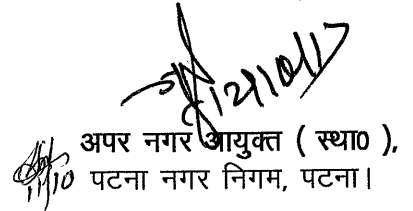 12/10/17
अपर नगर आयुक्त ( स्था0 ),
11/10
पटना नगर निगम, पटना।